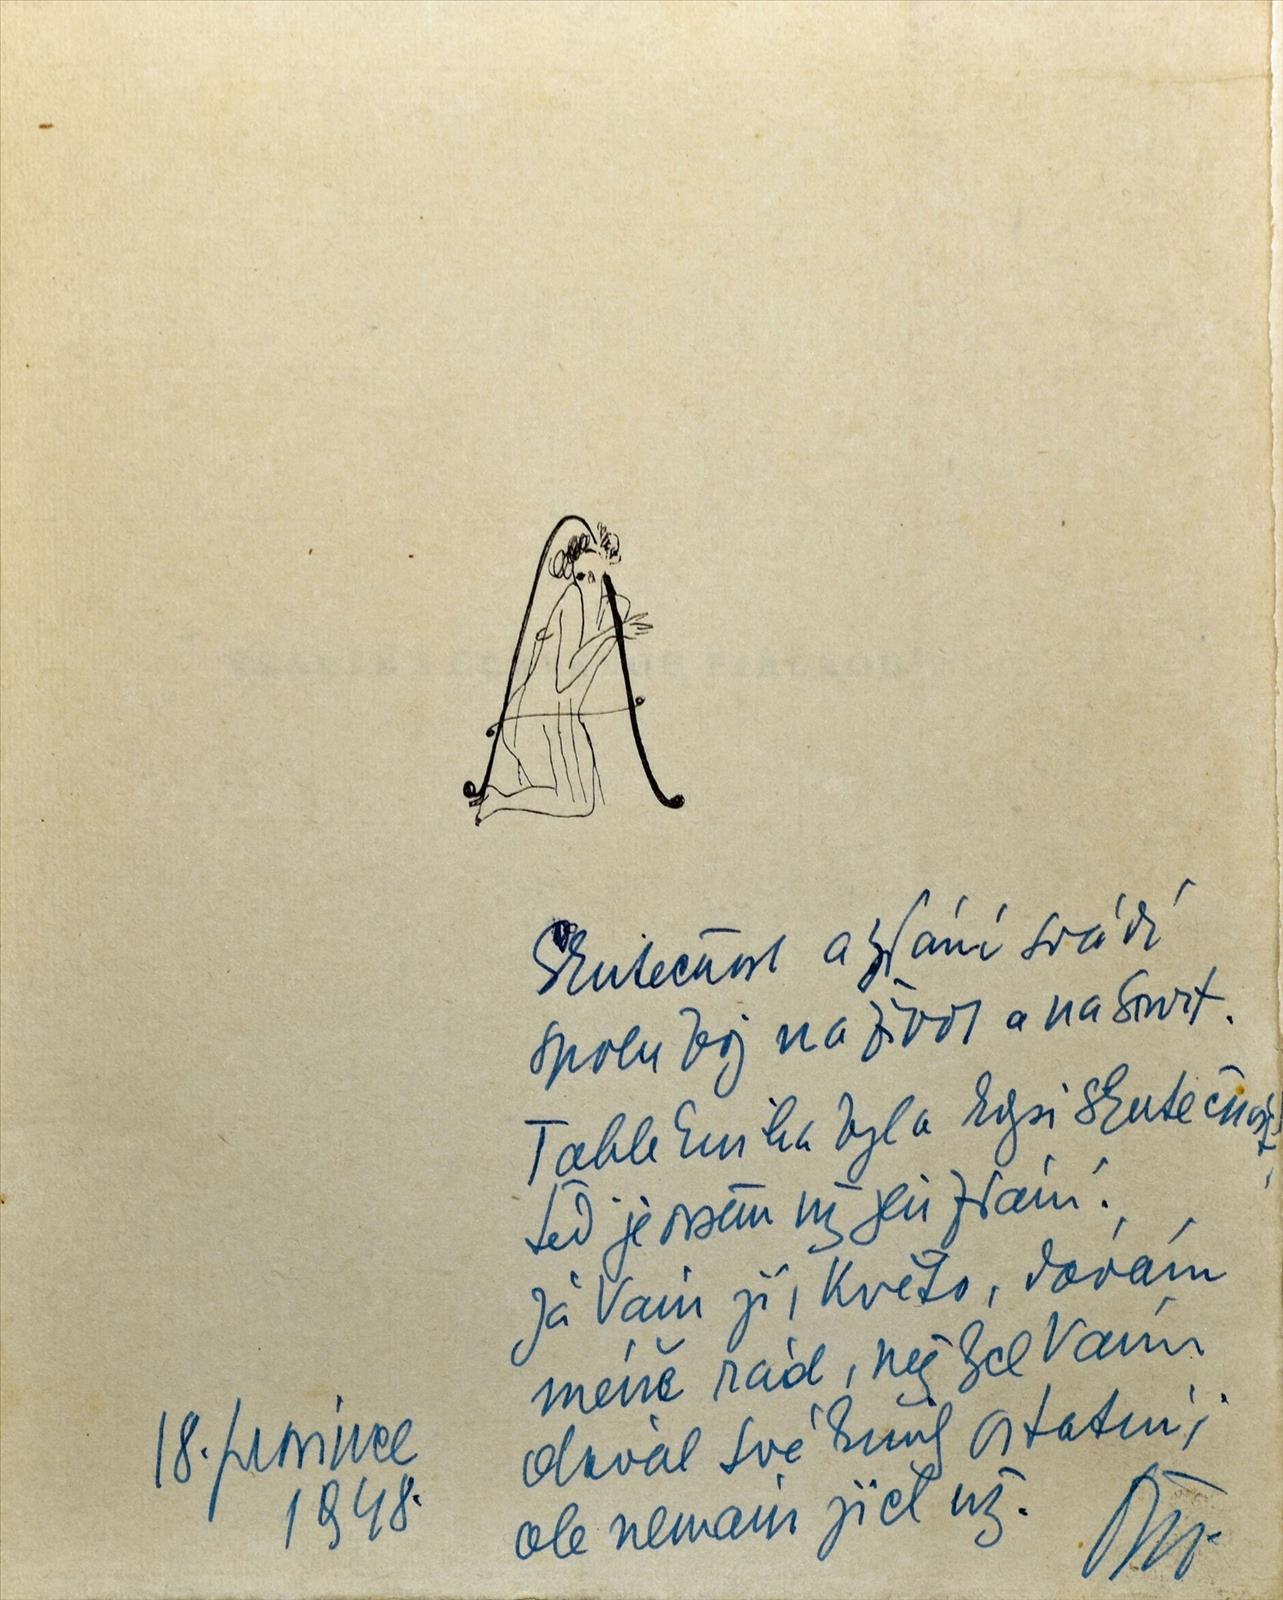 Skutečnost a zdání svádí
spolu boj na život a na smrt.
Tahle kniha byla kdysi skutečností,
teď je ovšem už jen zdání.
Já Vám ji, Květo, dávám
méně rád, než bych Vám
dával své knihy ostatní,
ale nemám jich už.
18. prosince
1948.